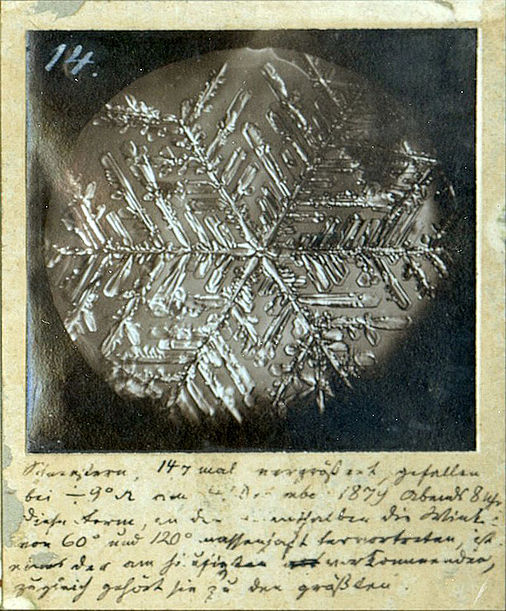 14.
Schneestern, 147 mal vergrößert, gefallen
bei ÷ 9° R am 1879 Abends 8 Uhr
Diese Form, an der die Winkel
von 60° und 120° massenhaft hervortreten, ist
eines der am häufigsten vorkommenden,
zugleich gehört sie zu den größten.